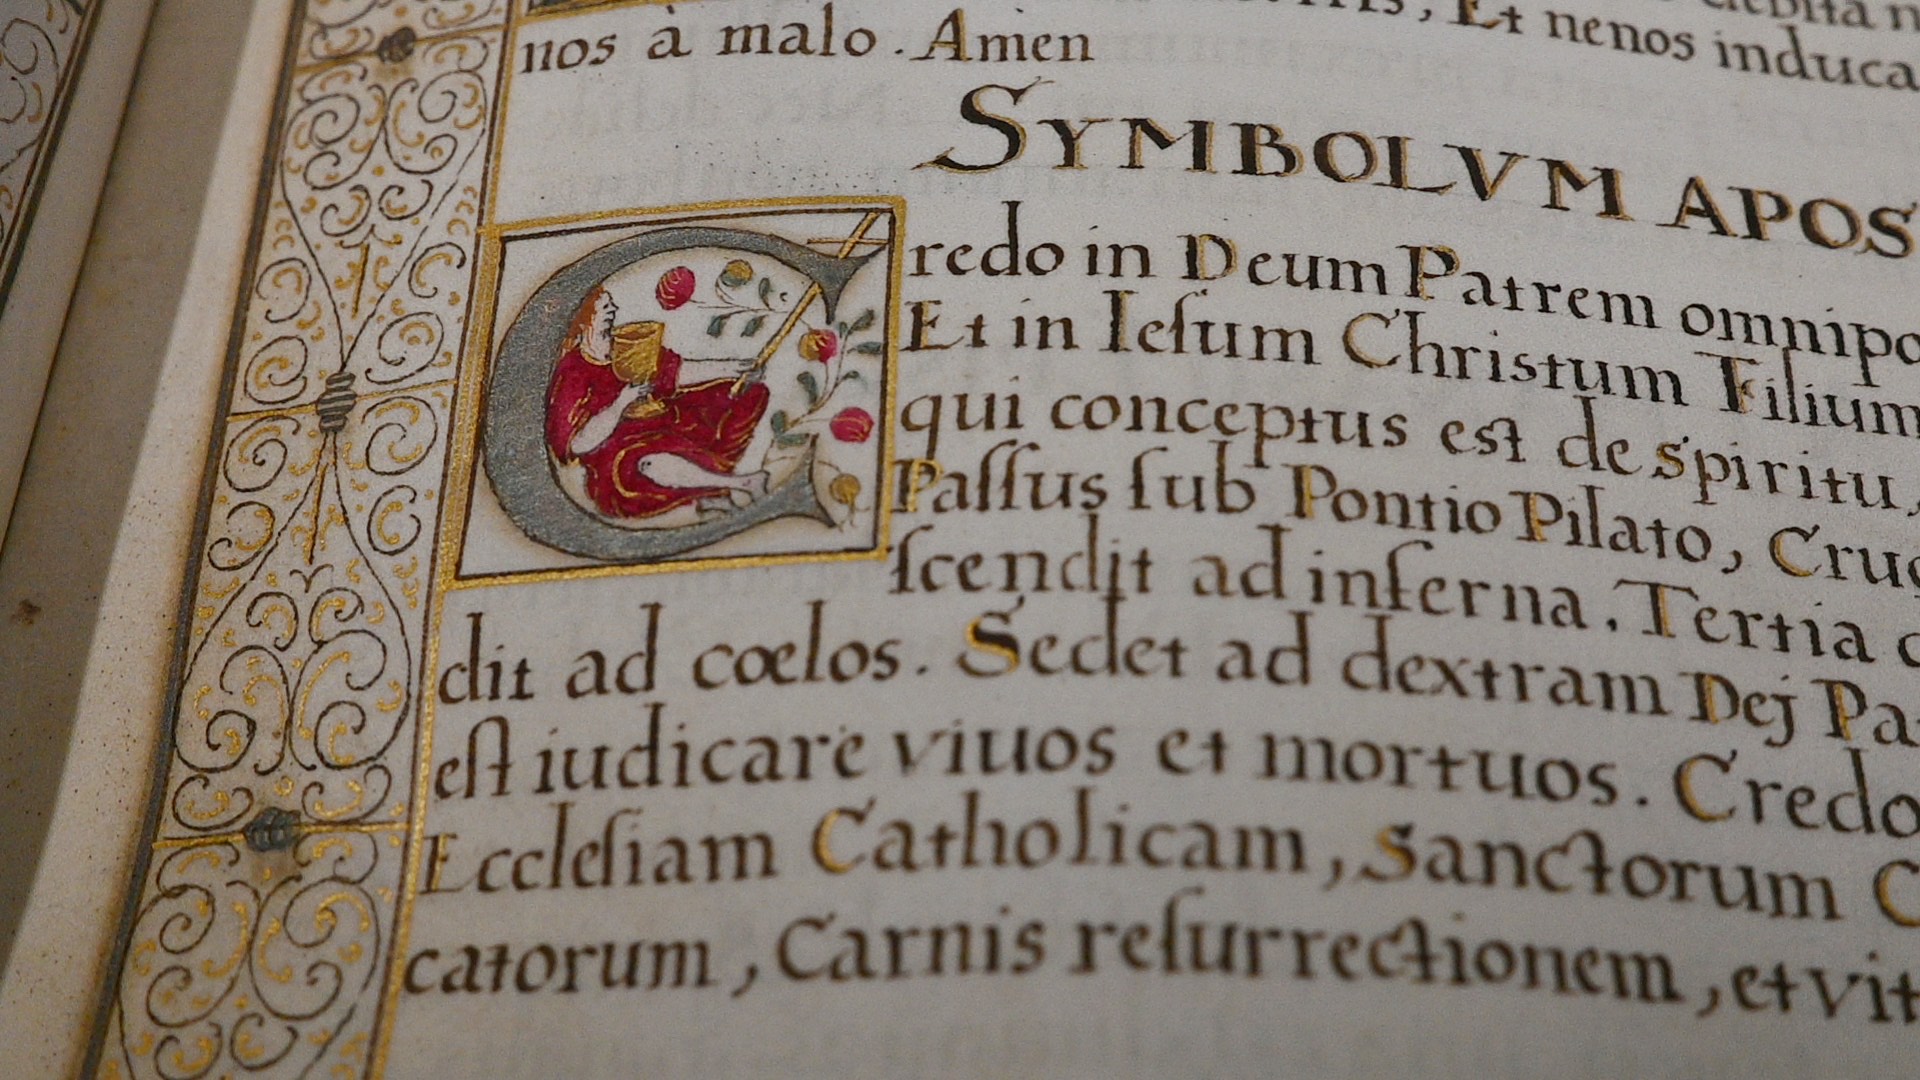 , Et nenos induca
nos à malo. Amen
SYMBOLVM APOS
Credo in Deum Patrem omnipo
Et in Ieſum Christum Filium
qui conceptus est de spiritu,
Paſſus ſub Pontio Pilato, Cruc
ſcendit ad inferna. Tertia d
dit ad cœlos. Sedet ad dextram Dej Pa
eſt iudicare viuos et mortuos. Credo
Eccleſiam Catholicam, Sanctorum C
catorum, Carnis reſurrectionem, et vit